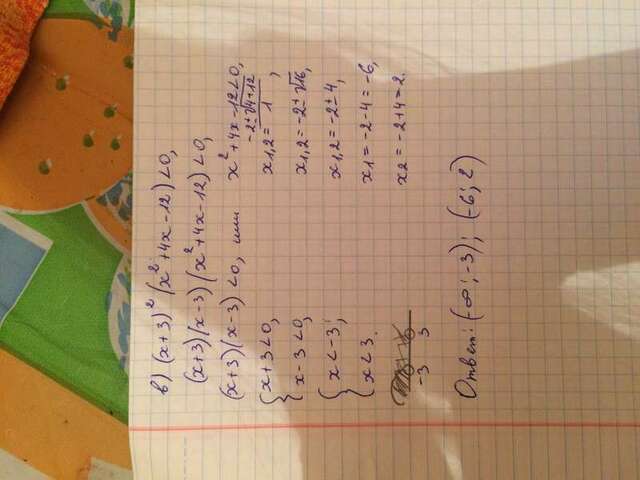 в) (x+3)² (x²+4x-12)<0,
(x+3)(x-3)(x²+4x-12)<0,
(x+3)(x-3)<0, или x²+4x-12<0,
{ x+3<0,
x-3<0,
{ x<-3;
x<3.
-3 3
x₁,₂ = (-2±√(4+12))/1,
x₁,₂ = -2±√16,
x₁,₂ = -2±4,
x₁ = -2-4 = -6,
x₂ = -2+4=2.
Ответ: (-∞; -3); (-6; 2)